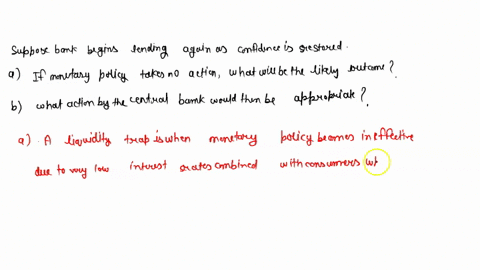 Suppose bank begins lending again as confidence is restored.
a) If monetary policy takes no action, what will be the likely outcome?
b) what action by the central bank would then be appropriate?
a) A liquidity trap is when monetary policy becomes ineffective
due to very low interest rates combined with consumers wh